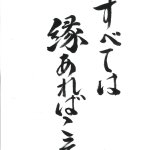 すべては
縁あればこそ